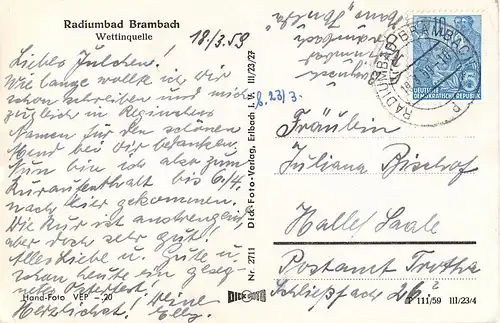 Radiumbad Brambach
Wettinquelle
18./3.59
Liebes Julchen!
Wie lange wollt ich dir
schon schreiben und mich
zugleich in Reginchens
Namen für den schönen
Abend bei dir bedanken.
Nun bin ich also zum
Kuraufenthalt bis 6./4.
nach hier gekommen.
Die Kur ist anstrengend,
aber doch sehr gut!
Alles Liebe u. Gute u.
schon heute ein geseg-
netes Osterfest!
Herzlichst! Deine
Elly.
Hand-Foto VEP — 20
Dick-Foto-Verlag, Erlbach i. V. III/23/27
Nr. 2711
b. 23/3.
RADIUMBAD BRAMBACH
DEUTSCHE
DEMOKRATISCHE REPUBLIK
10
Fräulein
Juliana Bischof
Halle/Saale
Postamt Trotha
Schließfach 26
P 111/59 III/23/4